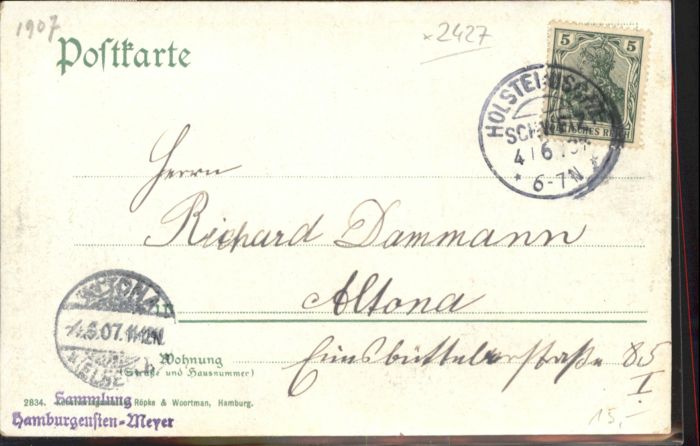 1907
×2427
Postkarte
5 5
DEUTSCHES REICH
HOLSTEINISCHE
SCHWEIZ
4/6 07
* 6-7N *
Herrn
Richard Dammann
in Altona
ALTONA
4.6.07. 11-12N.
(ELBE)
Wohnung
(Straße und Hausnummer)
Eimsbüttelerstraße 85
I.
2834. Röpke & Woortman, Hamburg.
Sammlung
Hamburgensien-Meyer
15,-